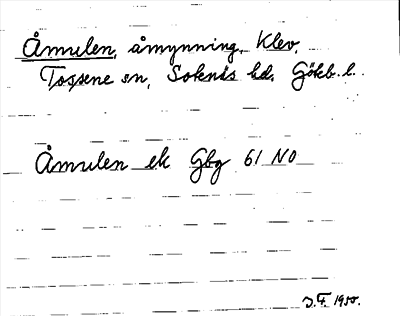 Åmulen, åmynning, Klev,
Tossene sn, Sotenäs hd. Göteb. l.
Åmulen ek Gbg 61 NO
J.F. 1950.